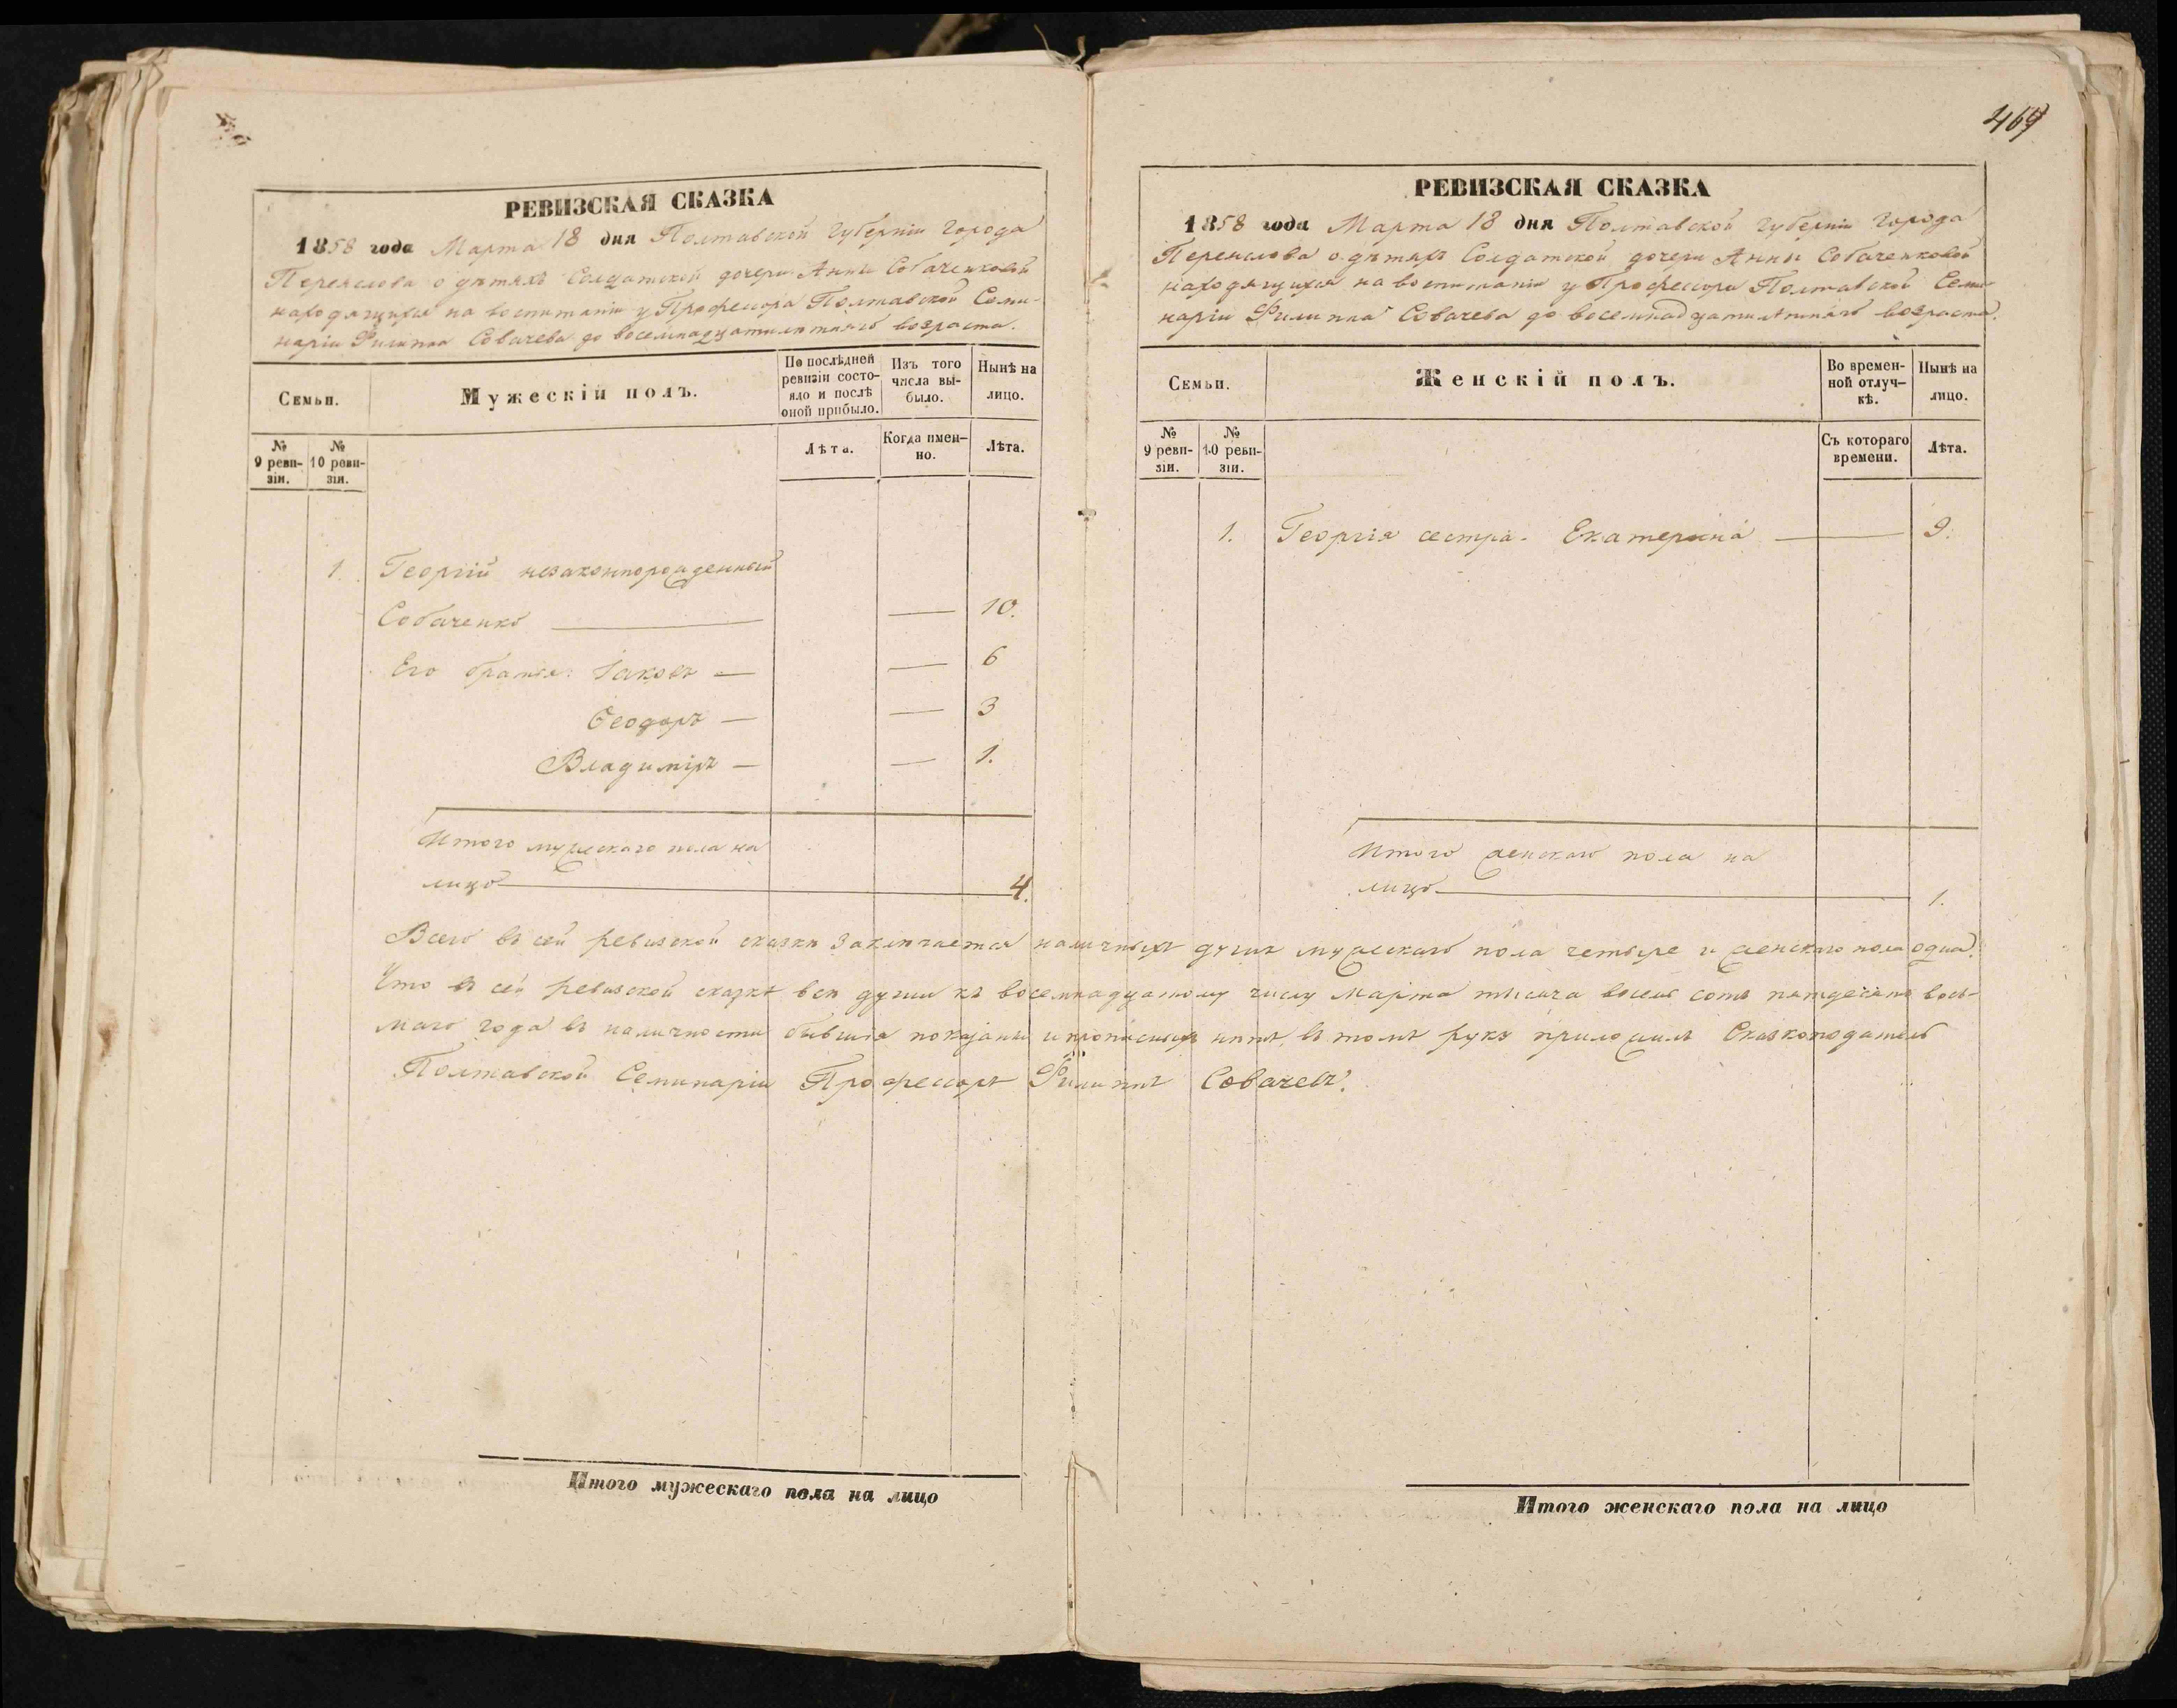 469
РЕВИЗСКАЯ СКАЗКА
1858 года Марта 18 дня Полтавской Губерніи города
Переяслова о дѣтяхъ Солдатской дочери Анны Собаченковой
находящихся на воспитаніи у Професора Полтавской Семи-
наріи Филиппа Совачева до восемнадцатилѣтняго возраста.
Семьи.
Мужескій полъ.
По послѣдней ревизіи состо-яло и послѣ оной прибыло.
Изъ того числа вы-было.
Нынѣ на лицо.
№ 9 реви-зіи.
№ 10 реви-зіи.
Лѣта.
Когда имен-но.
Лѣта.
1. Георгій незаконнорожденный
Собаченко — — 10.
Его братья: Іаковъ — — 6
Ѳеодоръ — — 3
Владиміръ — — 1.
Итого мужескаго пола на
лицо — 4.
РЕВИЗСКАЯ СКАЗКА
1858 года Марта 18 дня Полтавской Губерніи Города
Переяслова о дѣтяхъ Солдатской дочери Анны Собаченковой
находящихся на воспитаніи у Професора Полтавской Семи-
наріи Филиппа Совачева до восемнадцатилѣтняго возраста.
Семьи.
Женскій полъ.
Во времен-ной отлуч-кѣ.
Нынѣ на лицо.
№ 9 реви-зіи.
№ 10 реви-зіи.
Съ котораго времени.
Лѣта.
1. Георгія сестра. Екатерина — 9.
Итого женскаго пола на
лицо — 1.
Всего въ сей ревизской сказкѣ заключается наличныхъ душъ мужескаго пола четыре и женскаго пола одна.
Что въ сей ревизской сказкѣ всѣ души къ восемнадцатому числу Марта тысяча восемь сотъ пятдесятъ вось-
маго года въ наличности бывшія показаны и прописныхъ нѣтъ, въ томъ руку приложилъ Сказкоподатель
Полтавской Семинаріи Професоръ Филиппъ Совачевъ.
Итого мужескаго пола на лицо
Итого женскаго пола на лицо